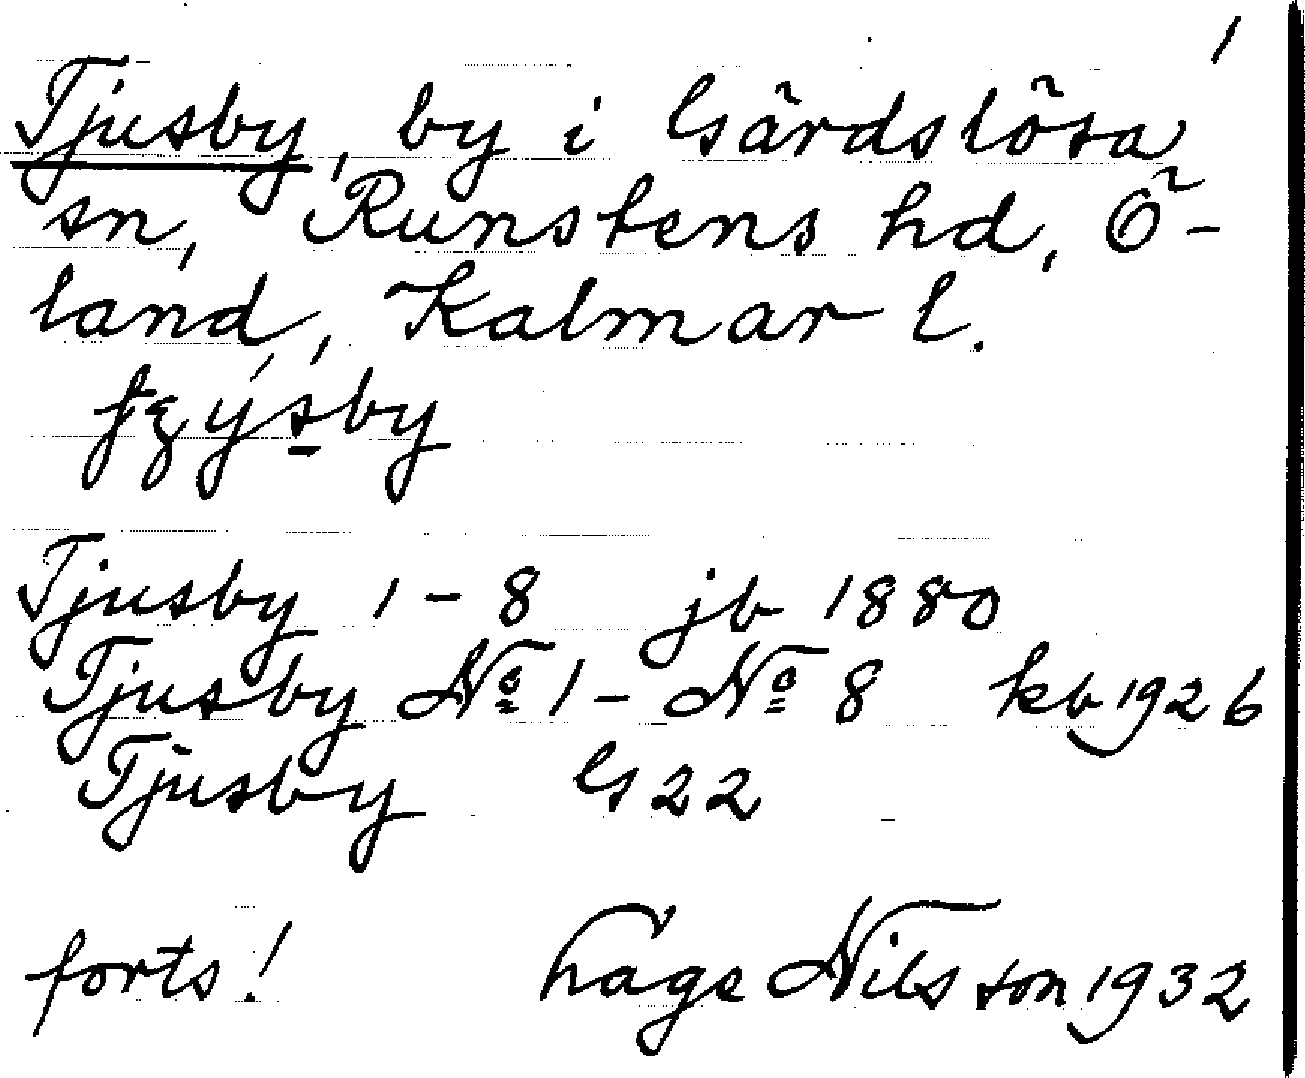 1
Tjusby, by i Gärdslösa
sn, Runstens hd, Ö-
land, Kalmar l.
Tjusby 1 - 8 jb 1880
Tjusby No 1 - No 8 kb 1926
Tjusby G 22
forts! Hage Nilsson 1932